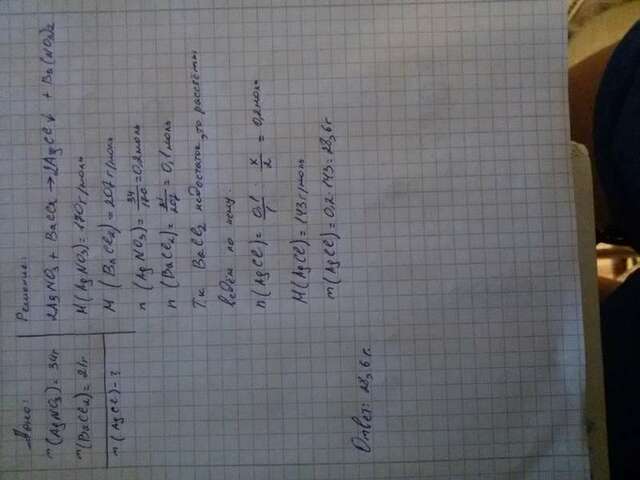 Дано:
m(AgNO3) = 34г
m(BaCl2) = 21г
m(AgCl) - ?
Решение:
2AgNO3 + BaCl2 → 2AgCl↓ + Ba(NO3)2
M(AgNO3) = 170 г/моль
M (BaCl2) = 207 г/моль
n (AgNO3) = 34/170 = 0,2 моль
n (BaCl2) = 21/207 = 0,1 моль
Т.к. BaCl2 недостаток, то рассчёты
ведём по нему:
n(AgCl) = 0,1/1 · x/2 = 0,2 моль
M(AgCl) = 143 г/моль
m(AgCl) = 0,2 · 143 = 28,6 г
Ответ: 28,6 г.